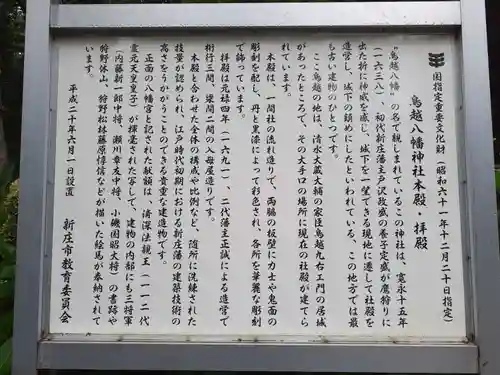 国指定重要文化財(昭和六十一年十二月二十日指定)
鳥越八幡神社本殿・拝殿
“鳥越八幡”の名で親しまれているこの神社は、寛永十五年
(一六三八)、初代新庄藩主戸沢政盛の養子定盛が鷹狩りに
出た時に神威を感じ、城下を一望できる現地に遷して社殿を
造営し、城下の鎮めにしたといわれている、この地方では最
も古い建物のひとつです。
ここ鳥越の地は、清水大蔵大輔の家臣鳥越九右エ門の居城
があったところで、その大手口の場所に現在の社殿が建てら
れています。
本殿は、一間社の流れ造りで、両脇の板壁に力士や鬼面の
彫刻を配し、丹と黒漆によって彩色され、各所を華麗な彫刻
で飾っています。
拝殿は元禄四年(一六九一)、二代藩主正誠による造営で
桁行三間、梁間二間の入母屋造りです。
本殿と合わせた全体の構成や比例など、随所に洗練された
技量が認められ、江戸時代初期における新庄藩の建築技術の
高さをうかがうことのできる貴重な建造物です。
正面の八幡宮と記された献額は、済深法親王(一一二代
霊元天皇皇子)が揮毫された写しで、建物の内部にも三将軍
(内藤新一郎中将、瀬川章友中将、小磯国昭大将)の書跡や
狩野休山、狩野松林藤原惇信などが描いた絵馬が奉納されて
います。
平成二十年六月一日設置
新庄市教育委員会